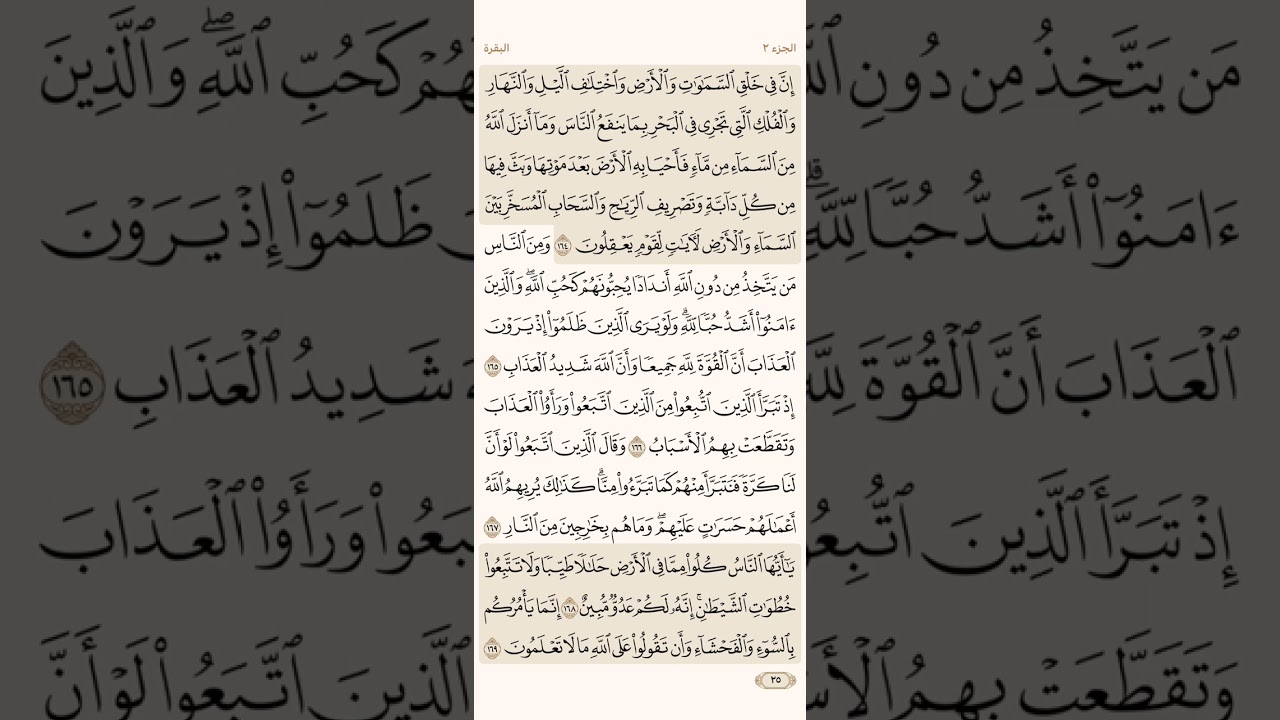 الجزء ٢
البقرة
إِنَّ فِي خَلْقِ ٱلسَّمَٰوَٰتِ وَٱلْأَرْضِ وَٱخْتِلَٰفِ ٱلَّيْلِ وَٱلنَّهَارِ
وَٱلْفُلْكِ ٱلَّتِي تَجْرِي فِي ٱلْبَحْرِ بِمَا يَنفَعُ ٱلنَّاسَ وَمَآ أَنزَلَ ٱللَّهُ
مِنَ ٱلسَّمَآءِ مِن مَّآءٍ فَأَحْيَا بِهِ ٱلْأَرْضَ بَعْدَ مَوْتِهَا وَبَثَّ فِيهَا
مِن كُلِّ دَآبَّةٍ وَتَصْرِيفِ ٱلرِّيَٰحِ وَٱلسَّحَابِ ٱلْمُسَخَّرِ بَيْنَ
ٱلسَّمَآءِ وَٱلْأَرْضِ لَأٓيَٰتٍ لِّقَوْمٍ يَعْقِلُونَ ١٦٤ وَمِنَ ٱلنَّاسِ
مَن يَتَّخِذُ مِن دُونِ ٱللَّهِ أَندَادًا يُحِبُّونَهُمْ كَحُبِّ ٱللَّهِۖ وَٱلَّذِينَ
ءَامَنُوٓا۟ أَشَدُّ حُبًّا لِّلَّهِۗ وَلَوْ يَرَى ٱلَّذِينَ ظَلَمُوٓا۟ إِذْ يَرَوْنَ
ٱلْعَذَابَ أَنَّ ٱلْقُوَّةَ لِلَّهِ جَمِيعًا وَأَنَّ ٱللَّهَ شَدِيدُ ٱلْعَذَابِ ١٦٥
إِذْ تَبَرَّأَ ٱلَّذِينَ ٱتُّبِعُوا۟ مِنَ ٱلَّذِينَ ٱتَّبَعُوا۟ وَرَأَوُا۟ ٱلْعَذَابَ
وَتَقَطَّعَتْ بِهِمُ ٱلْأَسْبَابُ ١٦٦ وَقَالَ ٱلَّذِينَ ٱتَّبَعُوا۟ لَوْ أَنَّ
لَنَا كَرَّةً فَنَتَبَرَّأَ مِنْهُمْ كَمَا تَبَرَّءُوا۟ مِنَّاۗ كَذَٰلِكَ يُرِيهِمُ ٱللَّهُ
أَعْمَٰلَهُمْ حَسَرَٰتٍ عَلَيْهِمْۖ وَمَا هُم بِخَٰرِجِينَ مِنَ ٱلنَّارِ ١٦٧
يَٰٓأَيُّهَا ٱلنَّاسُ كُلُوا۟ مِمَّا فِي ٱلْأَرْضِ حَلَٰلًا طَيِّبًا وَلَا تَتَّبِعُوا۟
خُطُوَٰتِ ٱلشَّيْطَٰنِۚ إِنَّهُۥ لَكُمْ عَدُوٌّ مُّبِينٌ ١٦٨ إِنَّمَا يَأْمُرُكُم
بِٱلسُّوٓءِ وَٱلْفَحْشَآءِ وَأَن تَقُولُوا۟ عَلَى ٱللَّهِ مَا لَا تَعْلَمُونَ ١٦٩
٢٥